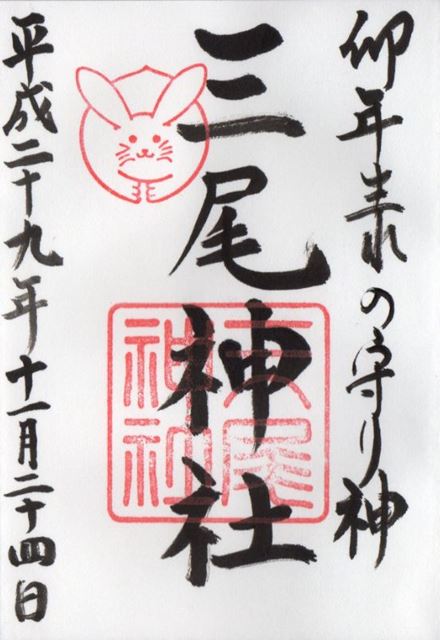 卯年生れの守り神
三尾神社
三尾神社
平成二十九年十一月二十四日